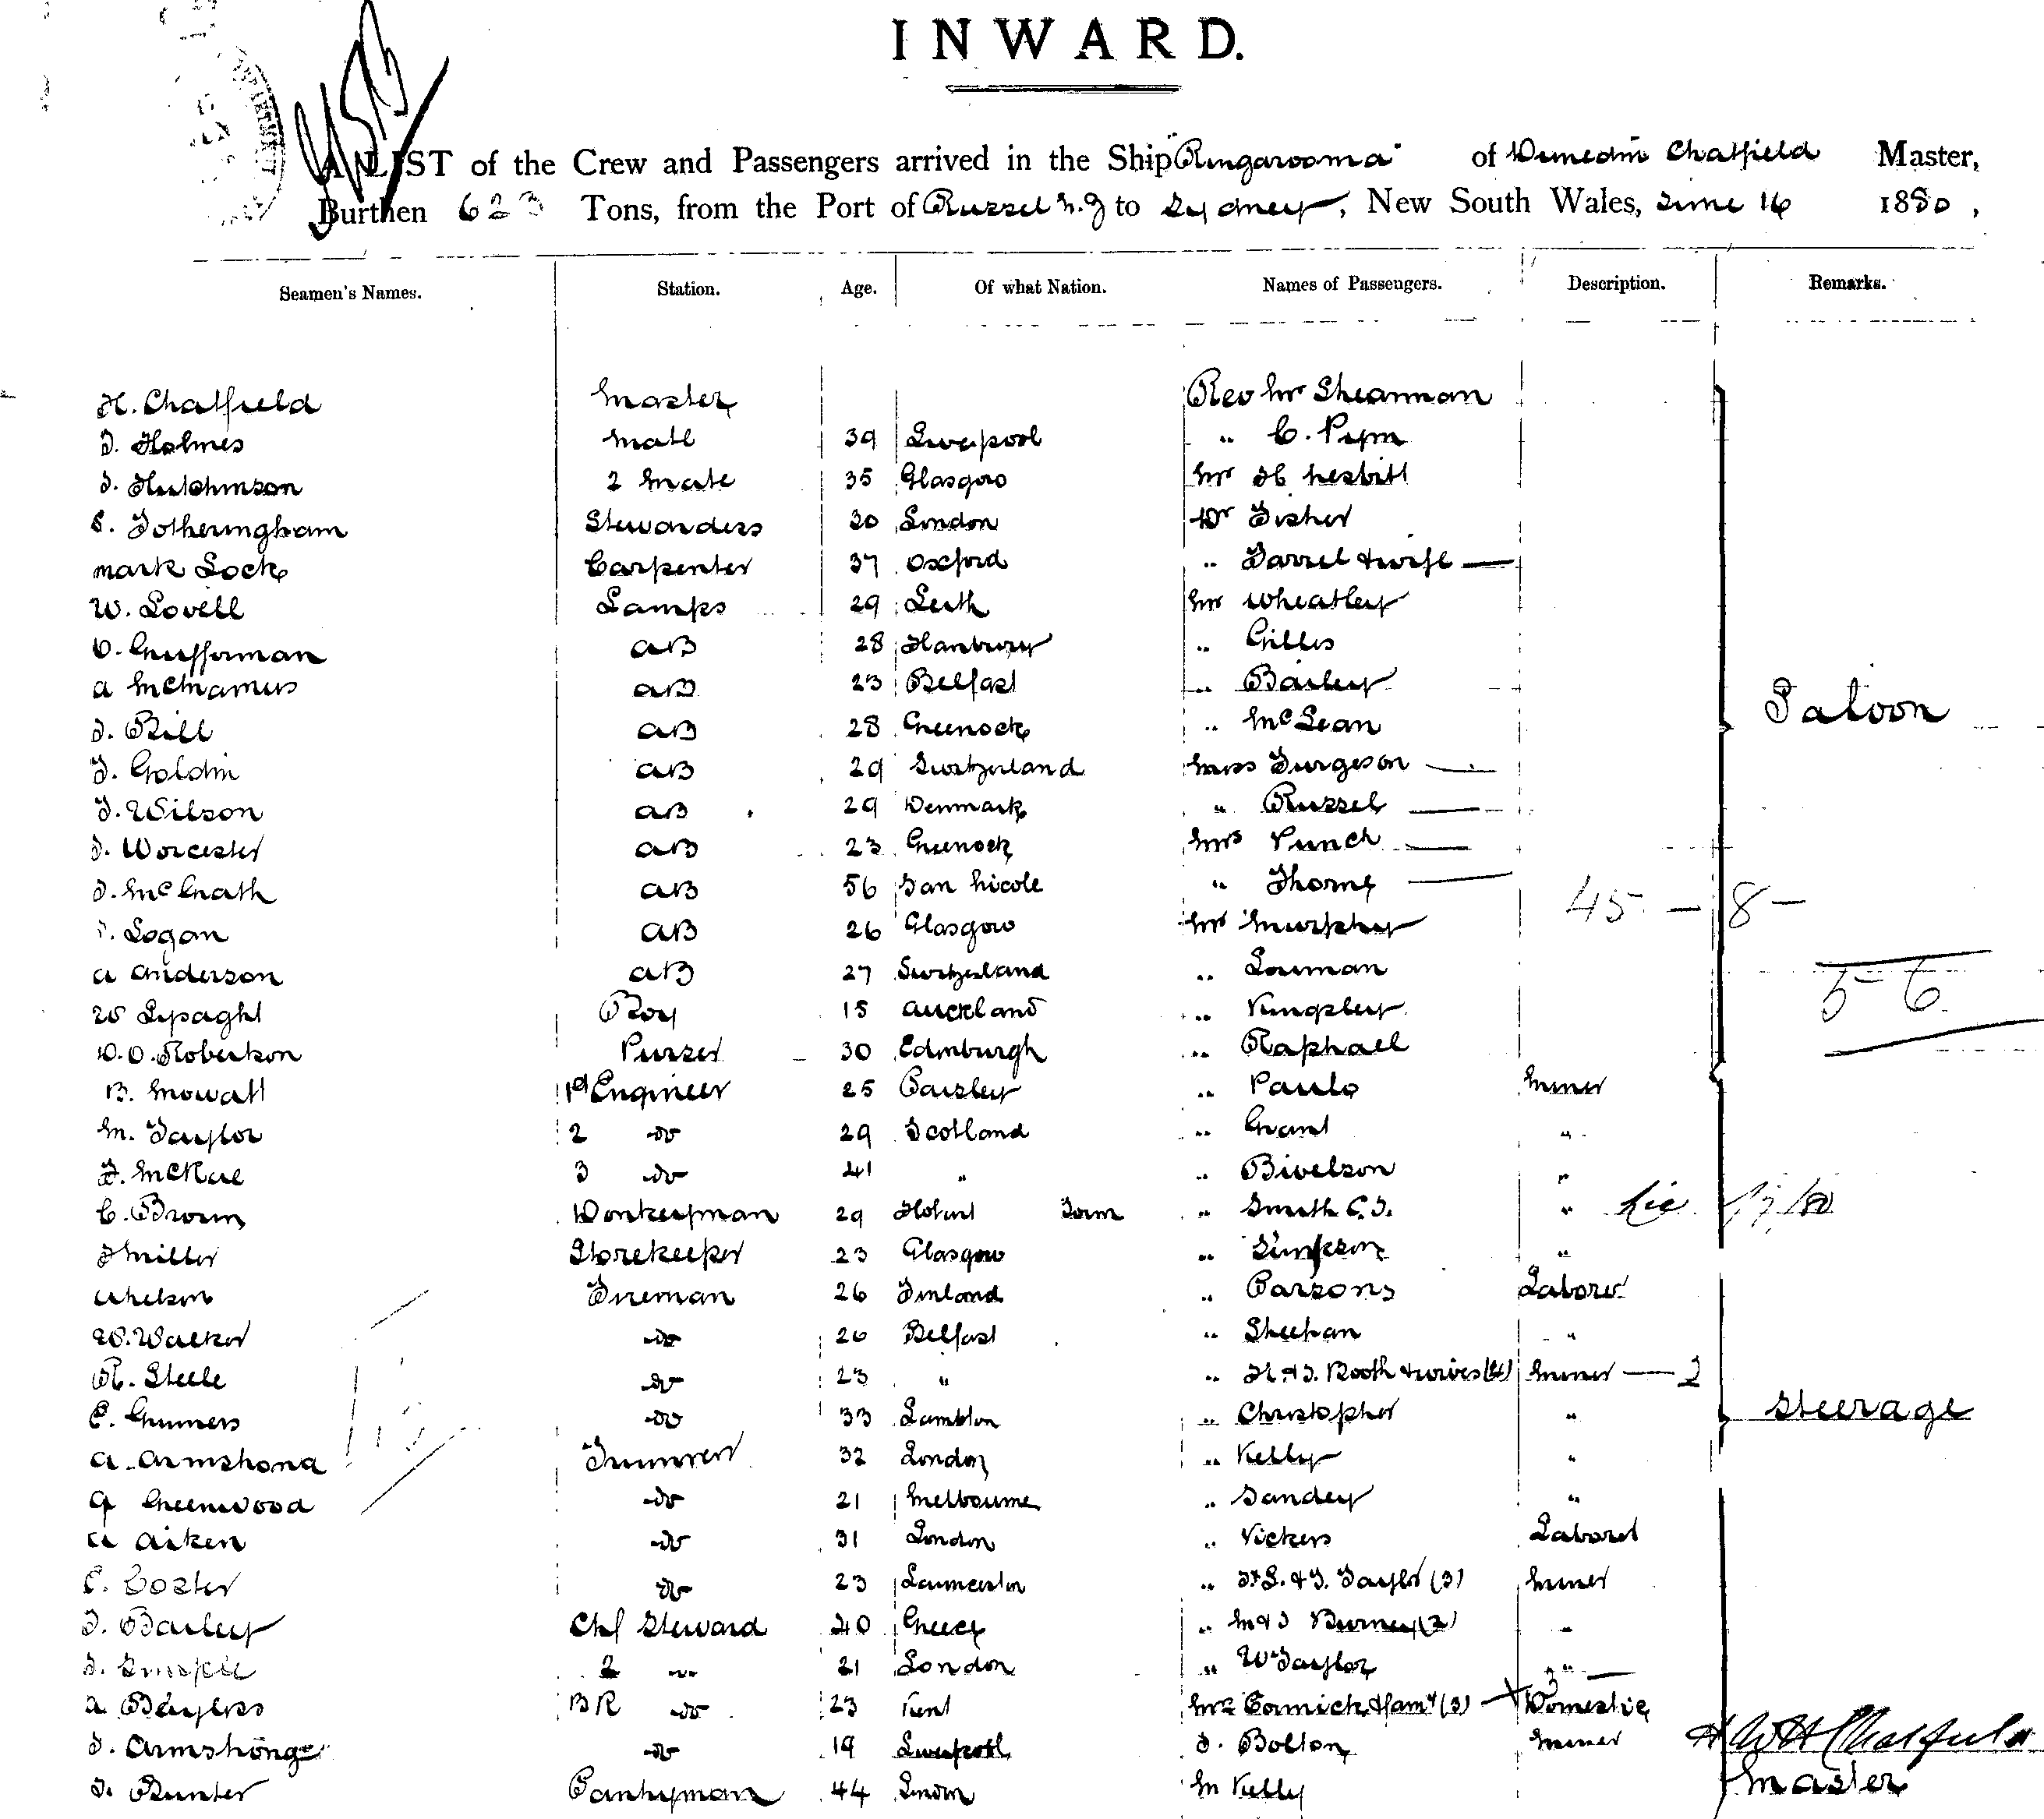 INWARD.
A LIST of the Crew and Passengers arrived in the Ship "Ringarooma" of Dunedin Chatfield Master,
Burthen 623 Tons, from the Port of Russel N.Z to Sydney, New South Wales, June 16 1880,
Seamen's Names. Station. Age. Of what Nation. Names of Passengers. Description. Remarks.
H. Chatfield Master Rev Mr Shearman
J. Holmes Mate 39 Liverpool " C. Pym
J. Hutchinson 2 Mate 35 Glasgow Mr H Nesbitt
S. Fotheringham Stewardess 30 London Dr Fisher
Mark Lock Carpenter 37 Oxford " Farrel & wife —
W. Lovell Lamps 29 Leith Mr Wheatley
AB 28 " Gilles
A McManus AB 23 Belfast " Bailey
J. Bill AB 28 Greenock " McLean Saloon
J. Goldin AB 29 Switzerland Miss Furgeson —
J. Wilson AB 29 Denmark " Russel —
J. Worcester AB 23 Greenock Mrs Punch —
J. McGrath AB 56 San Nicole " Thorne — 45 — 8 —
Logan AB 26 Glasgow Mr Murphy
A Anderson AB 27 Switzerland " Louman 56
W Lysaght Boy 15 Auckland " Kingsley
D. O. Robertson Purser 30 Edinburgh " Raphael
B. Mowatt 1st Engineer 25 Paisley " Paulo Miner
M. Taylor 2 do 29 Scotland " Grant "
J. McRae 3 do 41 " " Bivelson "
C. Brown Donkeyman 29 Hobart Town " Smith C. J. "
J Miller Storekeeper 23 Glasgow " Simpson "
A Nelson Fireman 26 Finland " Parsons Laborer
W. Walker do 26 Belfast " Sheehan "
R. Steele do 23 " " H. & J. Booth & wives (4) Miner — 2
E. do 33 Lambton " Christopher " Steerage
A. Armstrong Trimmer 32 London " Kelly "
G Greenwood do 21 Melbourne " Sandey "
A Aiken do 31 London " Vickers Laborer
C. Coster do 23 Launceston " H S. & J. Taylor (3) Miner
J. Bailey Chf Steward 40 Greece " M & J Burney (2) "
J. 2 " 21 London " W Taylor "
A Bayliss BR do 23 Kent Mrs Cormick & famy (3) Domestic
J. Armstrong do 19 Liverpool J. Bolton Miner H W H Chatfield
J. Hunter Pantryman 44 London M Kelly Master